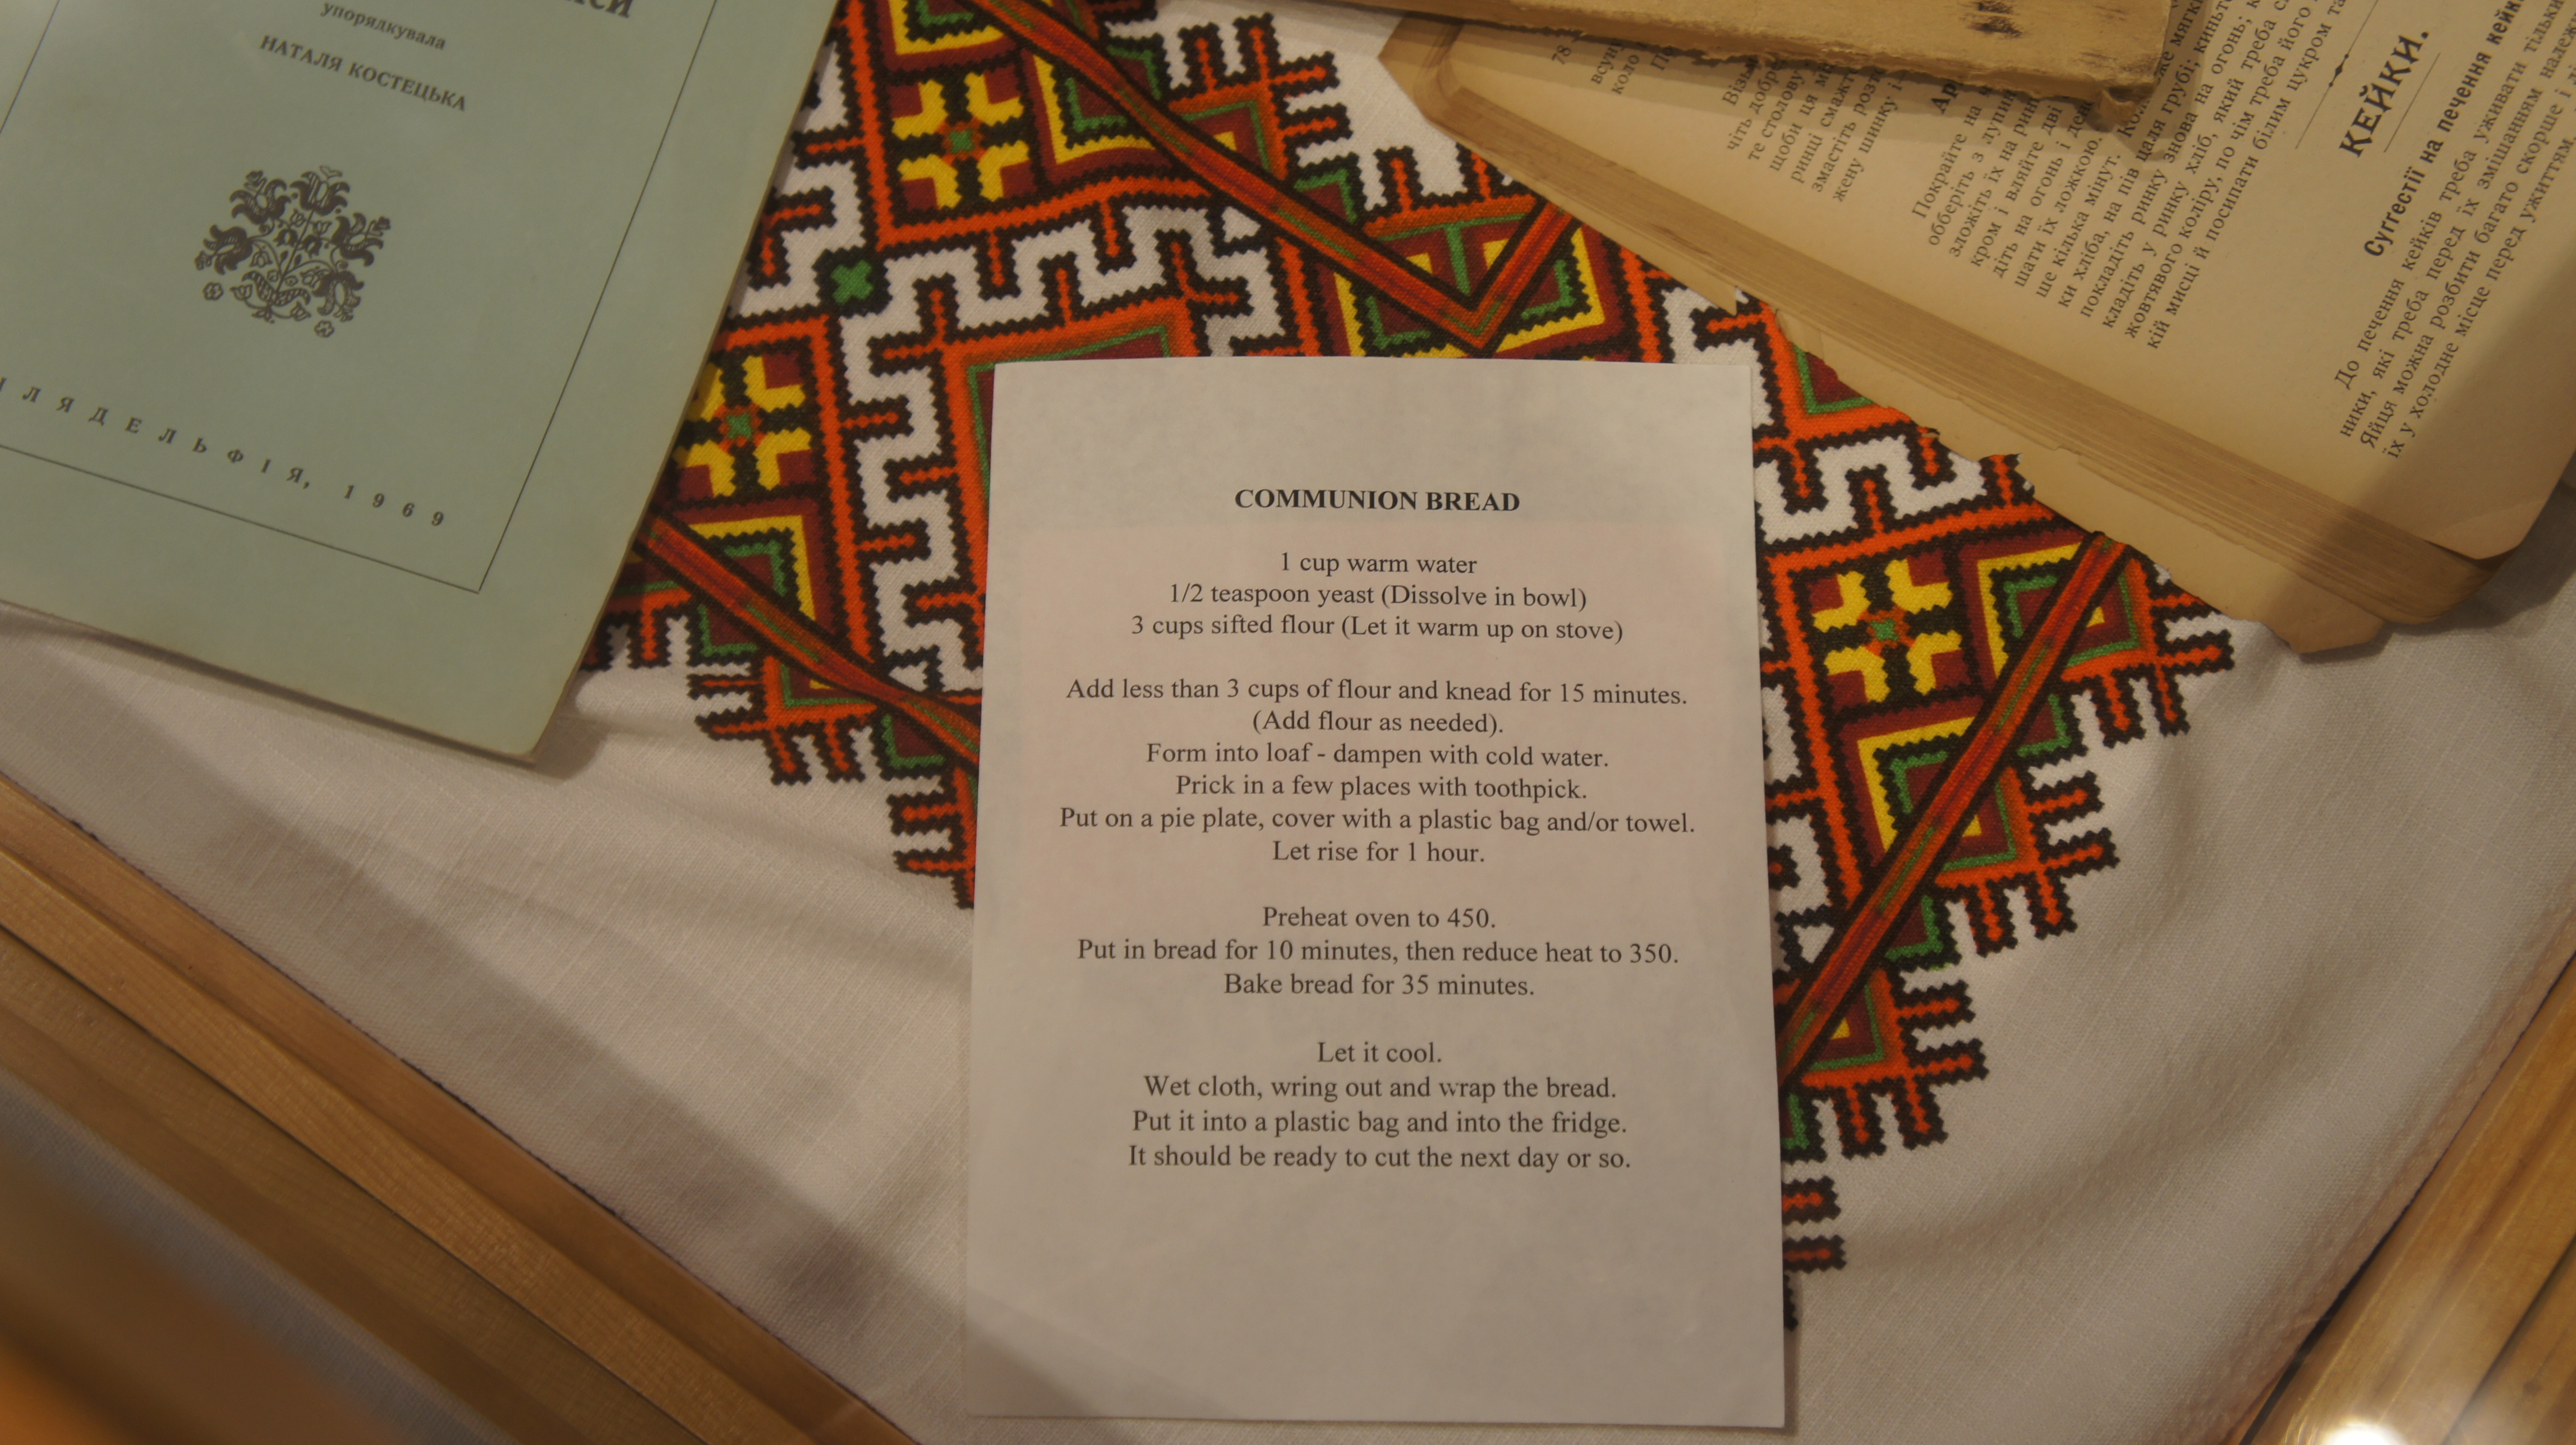 упорядкувала
НАТАЛЯ КОСТЕЦЬКА
ЛЯДЕЛЬФІЯ, 1969
COMMUNION BREAD
1 cup warm water
1/2 teaspoon yeast (Dissolve in bowl)
3 cups sifted flour (Let it warm up on stove)
Add less than 3 cups of flour and knead for 15 minutes.
(Add flour as needed).
Form into loaf - dampen with cold water.
Prick in a few places with toothpick.
Put on a pie plate, cover with a plastic bag and/or towel.
Let rise for 1 hour.
Preheat oven to 450.
Put in bread for 10 minutes, then reduce heat to 350.
Bake bread for 35 minutes.
Let it cool.
Wet cloth, wring out and wrap the bread.
Put it into a plastic bag and into the fridge.
It should be ready to cut the next day or so.
78
чіть добре
те столову
щоби ця
ринці смажт
змастіть розт
жену шинку і
Покрайте на
обберіть з лупи
зложіть їх на рин
кром і вляйте дві
діть на огонь і
шати їх ложкою.
ще кілька мінут.
ки хліба, на пів цаля грубі; киньт
покладіть ринку знова на огонь;
кладіть у ринку хліб, який треба
жовтявого коліру, по чім треба його
кій мисці й посипати білим цукром
КЕЙКИ.
Суґґестії на печення кейк
До печення кейків треба уживати тільки
ники, які треба перед їх змішанням належ
Яйця можна розбити багато скорше і
їх у холодне місце перед ужиттям.